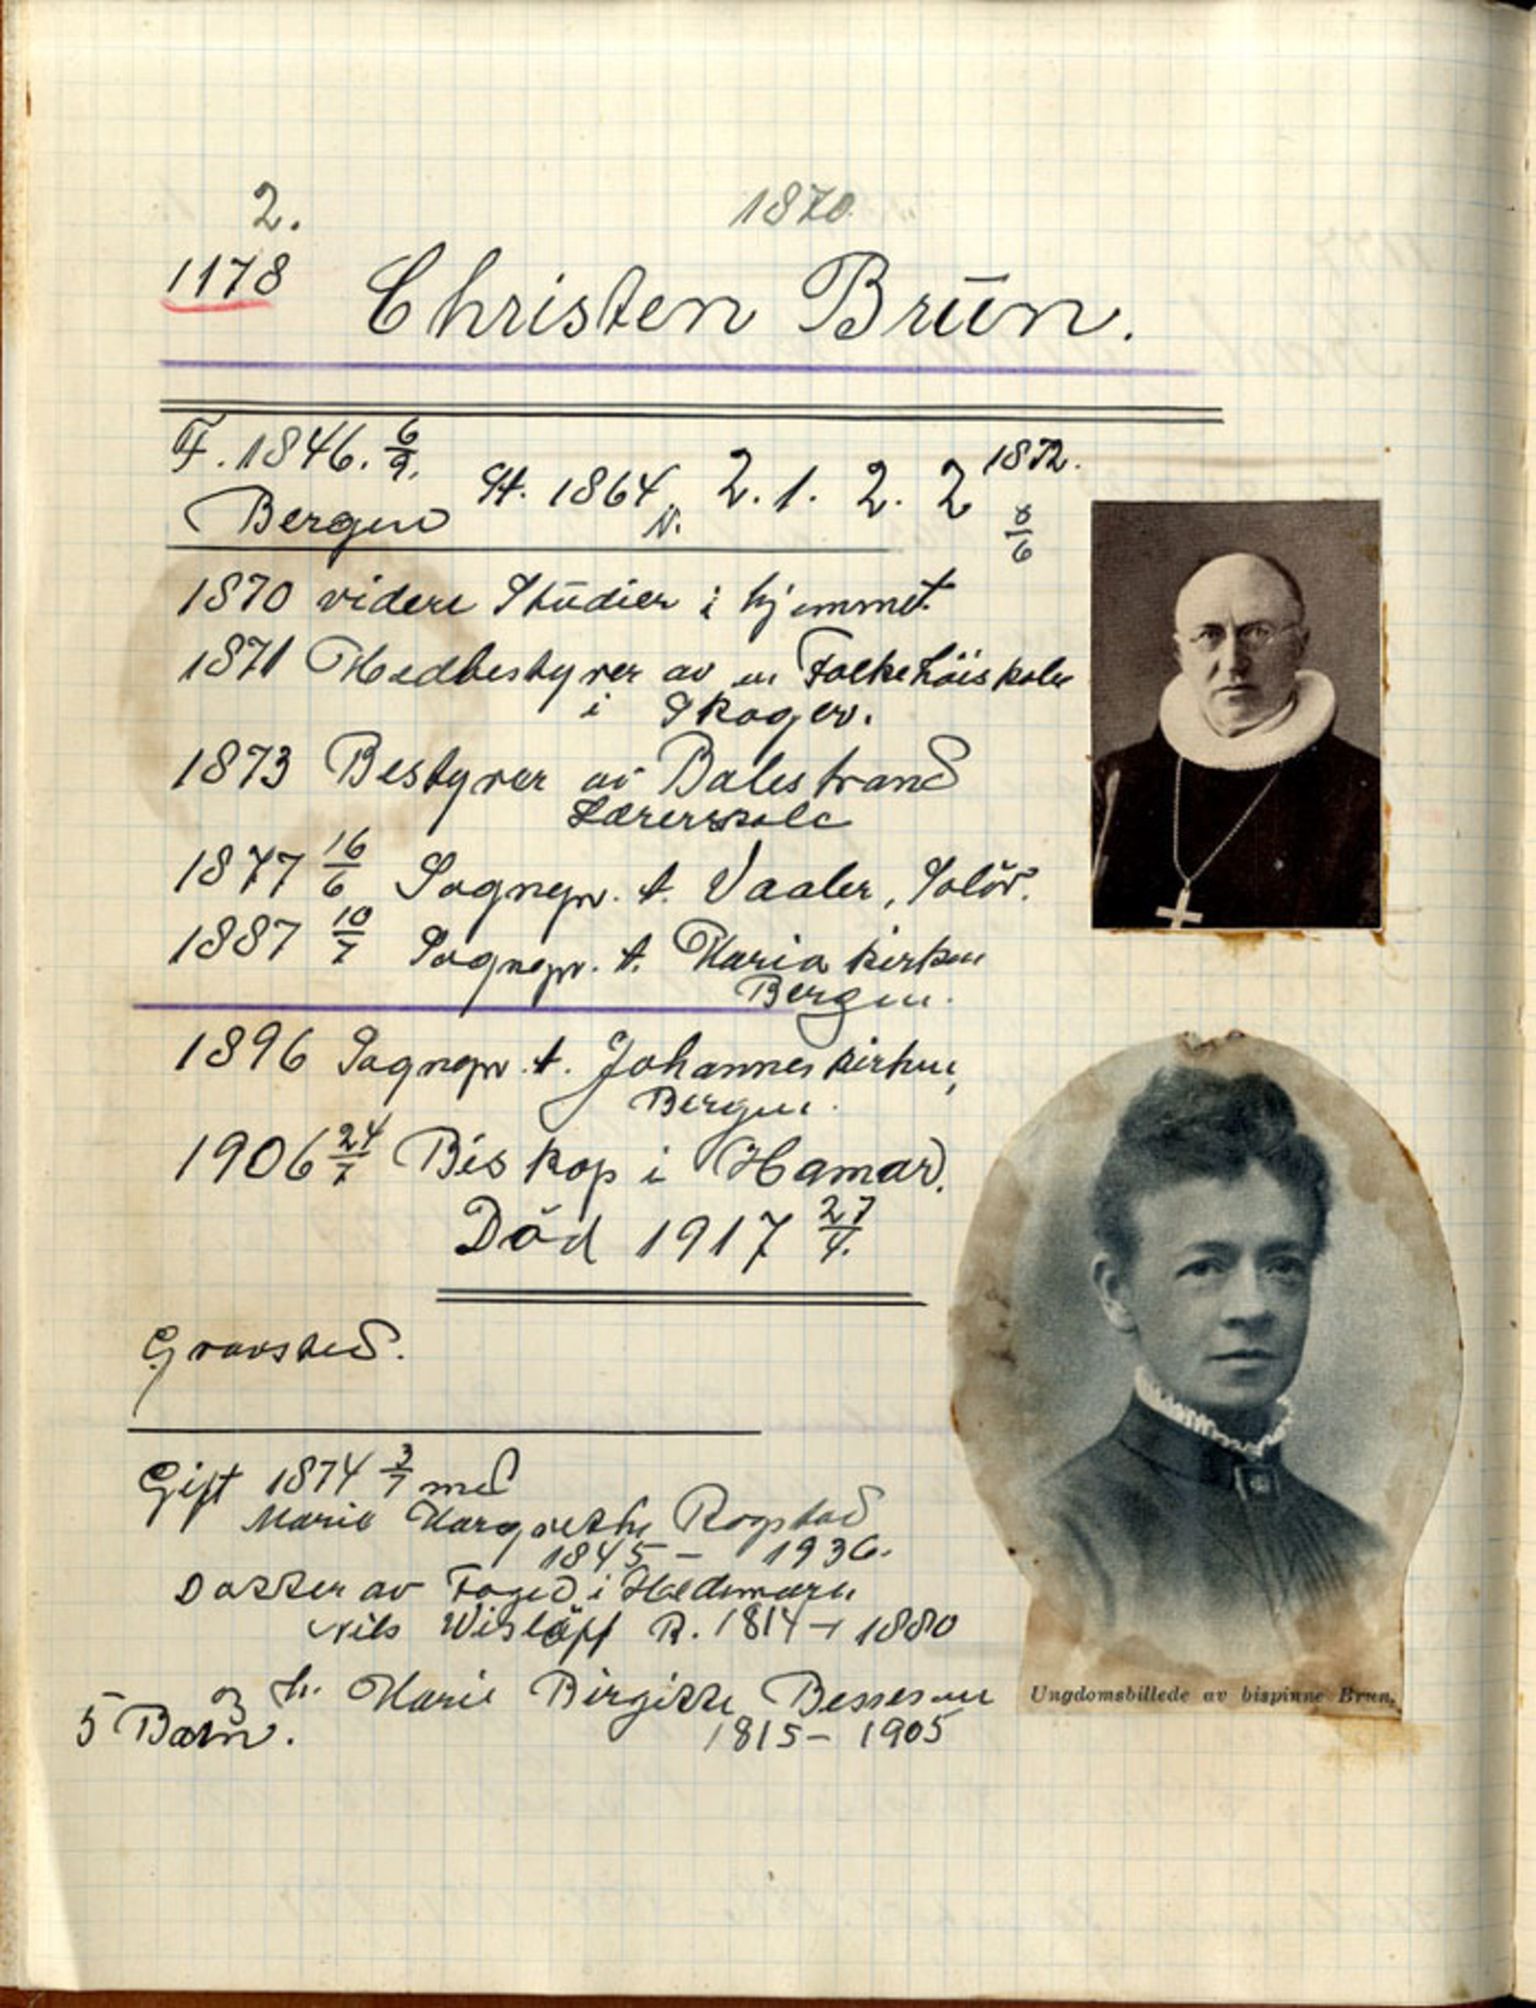 2. 1870
1178 Christen Brūn.
F. 1846. 6/9.
Bergen St. 1864 N. 2. 1. 2. 2 1872. 8/6
1870 videre Stūdier i hjemmet.
1871 Medbestyrer av en Folkehöiskole
i Skoger.
1873 Bestyrer av Balestrand
Lærerskole
1877 16/6 Sognepr. t. Vaaler, Solör.
1887 10/7 Sognepr. t. Mariakirken
Bergen.
1896 Sognepr. t. Johanneskirken,
Bergen.
1906 24/7 Biskop i Hamar.
Död 1917 27/4.
Gravsted.
Gift 1874 3/7 med
Marie Margrethe Rogstad
1845 - 1936.
Datter av Foged i Hedemark
Nils Wislöff R. 1814 - 1880
og h. Marie Birgitte Bessesen
5 Barn. 1815 - 1905
Ungdomsbillede av bispinne Brun.